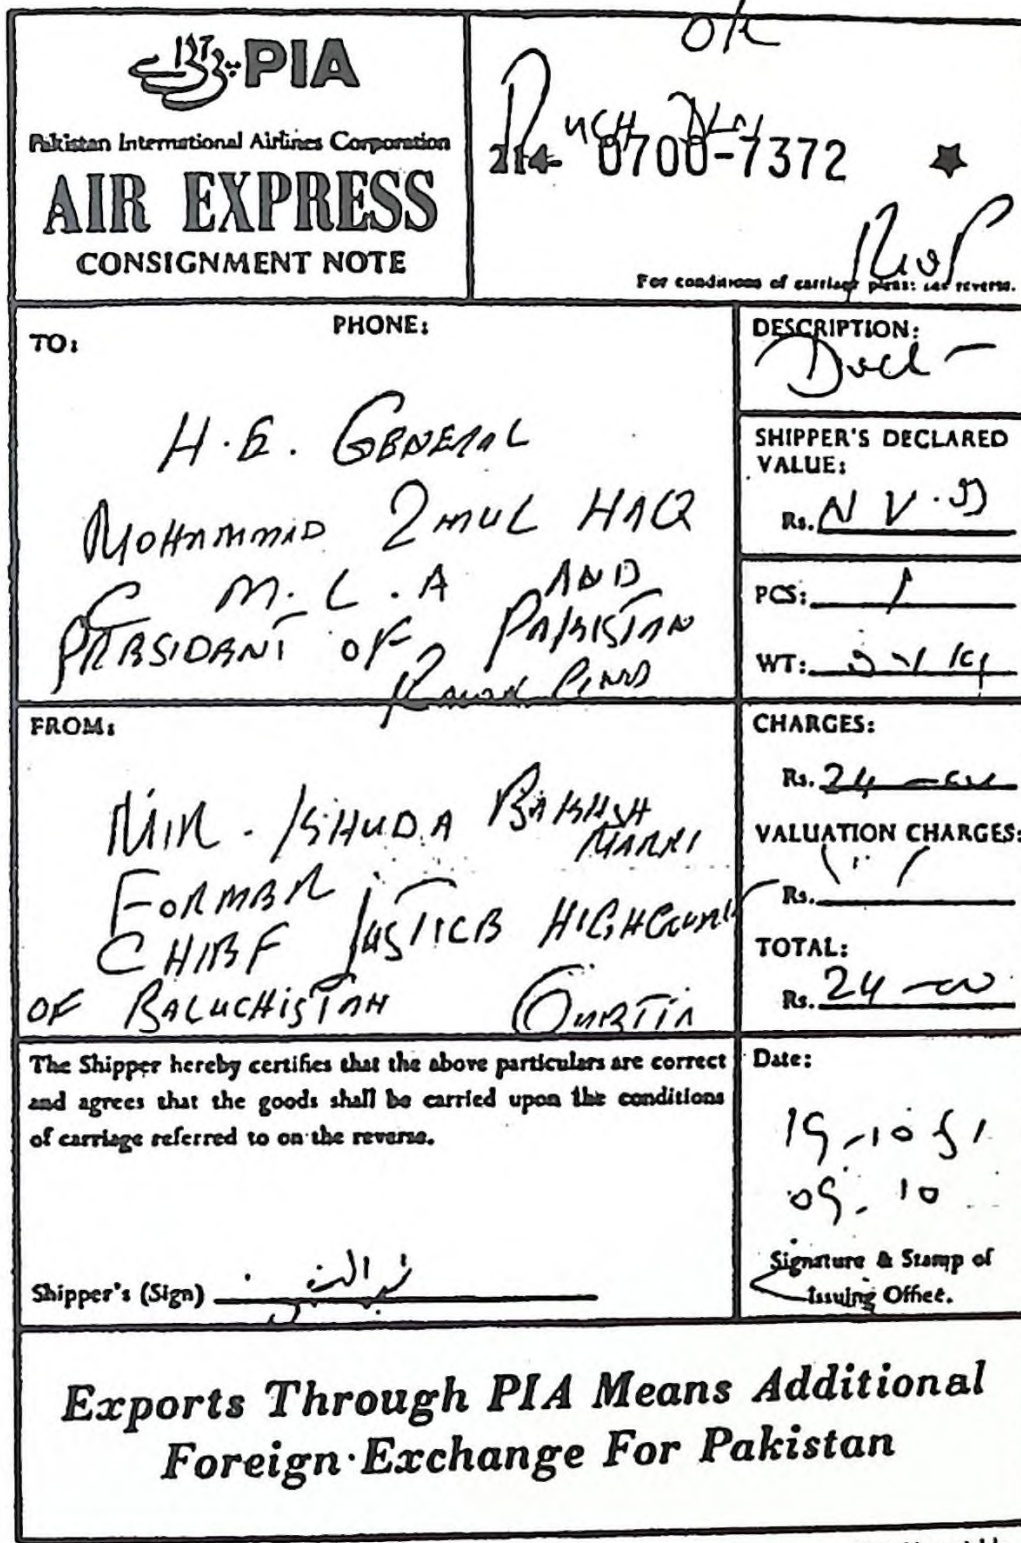 PIA
Pakistan International Airlines Corporation
AIR EXPRESS
CONSIGNMENT NOTE
O/K
214- 0700-7372
For conditions of carriage please see reverse.
TO:
PHONE:
H.E. GENERAL
MOHAMMAD ZIAUL HAQ
C M.L.A AND
PRESIDENT OF PAKISTAN
RAWALPINDI
FROM:
MIR. KHUDA BAKHSH
MARRI
FORMER
CHIEF JUSTICE HIGHCOURT
OF BALUCHISTAN QUETTA
DESCRIPTION:
SHIPPER'S DECLARED
VALUE:
Rs. N V.D
PCS: 1
WT:
CHARGES:
Rs. 24
VALUATION CHARGES:
Rs.
TOTAL:
Rs. 24
The Shipper hereby certifies that the above particulars are correct
and agrees that the goods shall be carried upon the conditions
of carriage referred to on the reverse.
Shipper's (Sign)
Date:
19-10 81
09.10
Signature & Stamp of
Issuing Office.
Exports Through PIA Means Additional
Foreign Exchange For Pakistan